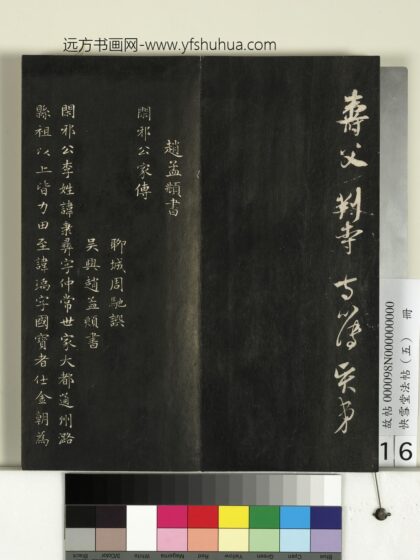 远方书画网-www.yfshuhua.com
壽父判事
趙孟頫書
閑邪公家傳
聊城周馳譔
吳興趙孟頫書
閑邪公李姓諱秉彞字仲常世家大都通州潞
縣祖以上皆力田至諱瑀字國寶者仕金朝爲
故帖 000098N000000000 冊
快雪堂法帖(五)
16
Blue
Cyan
Green
Yellow
Red
Magenta
White
3/Color
Black